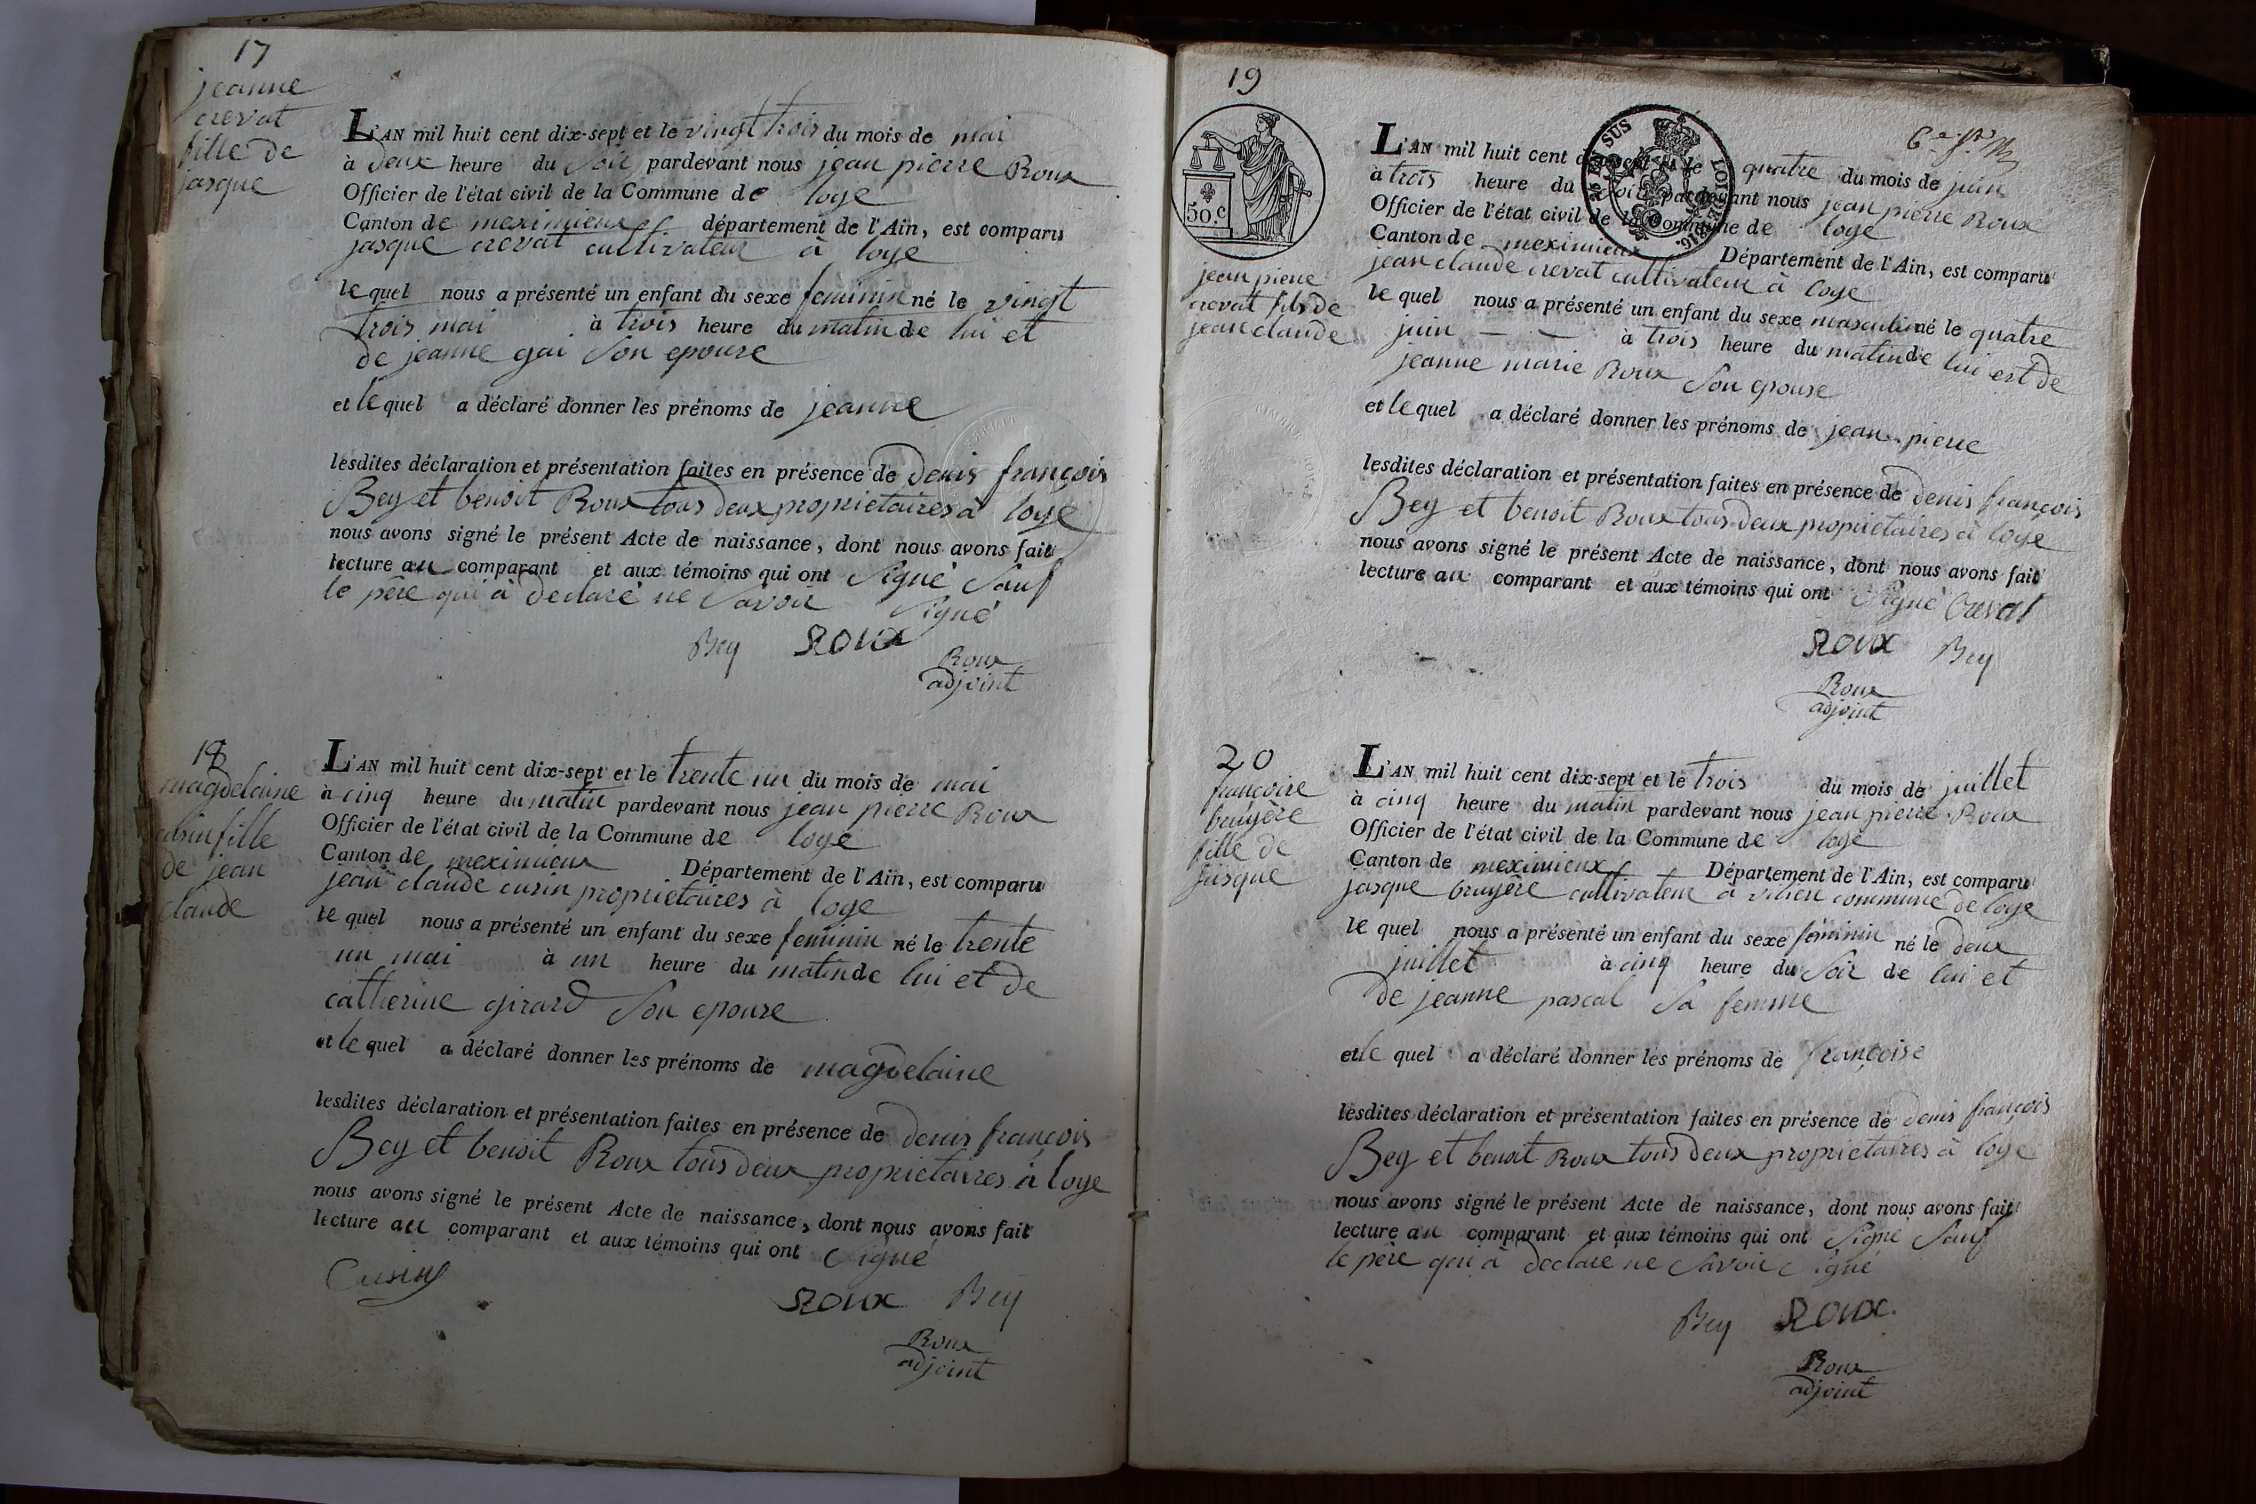 17
jeanne
crevat
fille de
jasque
L'AN mil huit cent dix-sept et le vingt trois du mois de mai
à deux heure du soir pardevant nous jean pierre Roux
Officier de l'état civil de la Commune de loye
Canton de meximieux département de l'Ain, est comparu
jasque crevat cultivateur à loye
le quel nous a présenté un enfant du sexe feminin né le vingt
trois mai à trois heure du matin de lui et
de jeanne gai son epouse
et le quel a déclaré donner les prénoms de jeanne
lesdites déclaration et présentation faites en présence de denis françois
Bey et benoit Roux tous deux proprietaires à loye
nous avons signé le présent Acte de naissance, dont nous avons fait
lecture au comparant et aux témoins qui ont signé sauf
le père qui à declaré ne savoir signé
Bey Roux
Roux
adjoint
18
magdelaine
cusin fille
de jean
claude
L'AN mil huit cent dix-sept et le trente un du mois de mai
à cinq heure du matin pardevant nous jean pierre Roux
Officier de l'état civil de la Commune de loye
Canton de meximieux Département de l'Ain, est comparu
jean claude cusin proprietaires à loye
le quel nous a présenté un enfant du sexe feminin né le trente
un mai à un heure du matin de lui et de
catherine girard son epouse
et le quel a déclaré donner les prénoms de magdelaine
lesdites déclaration et présentation faites en présence de denis françois
Bey et benoit Roux tous deux proprietaires à loye
nous avons signé le présent Acte de naissance, dont nous avons fait
lecture au comparant et aux témoins qui ont signé
Cusin
Roux Bey
Roux
adjoint
19
50 c
jean pierre
crevat fils de
jean claude
L'AN mil huit cent dix-sept et le quatre du mois de juin
à trois heure du soir pardevant nous jean pierre Roux
Officier de l'état civil de la Commune de loye
Canton de meximieux Département de l'Ain, est comparu
jean claude crevat cultivateur à loye
le quel nous a présenté un enfant du sexe masculin né le quatre
juin à trois heure du matin de lui est de
jeanne marie Roux son epouse
et le quel a déclaré donner les prénoms de jean pierre
lesdites déclaration et présentation faites en présence de denis françois
Bey et benoit Roux tous deux proprietaires à loye
nous avons signé le présent Acte de naissance, dont nous avons fait
lecture au comparant et aux témoins qui ont signé Crevat
Roux Bey
Roux
adjoint
20
françoise
bruyère
fille de
jasque
L'AN mil huit cent dix-sept et le trois du mois de juillet
à cinq heure du matin pardevant nous jean pierre Roux
Officier de l'état civil de la Commune de loye
Canton de meximieux Département de l'Ain, est comparu
jasque bruyère cultivateur à commune de loye
le quel nous a présenté un enfant du sexe féminin né le deux
juillet à cinq heure du soir de lui et
de jeanne pascal sa femme
et le quel a déclaré donner les prénoms de françoise
lesdites déclaration et présentation faites en présence de denis françois
Bey et benoit Roux tous deux proprietaires à loye
nous avons signé le présent Acte de naissance, dont nous avons fait
lecture au comparant et aux témoins qui ont signé sauf
le père qui à declaré ne savoir signé
Bey Roux.
Roux
adjoint